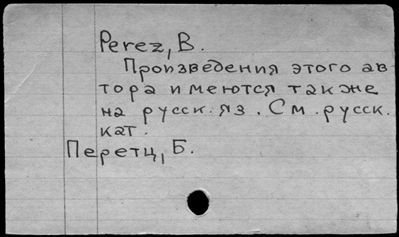 Perez, B.
Произведения этого ав
тора имеются также
на русск. яз. См. русск.
кат.
Перетц, Б.